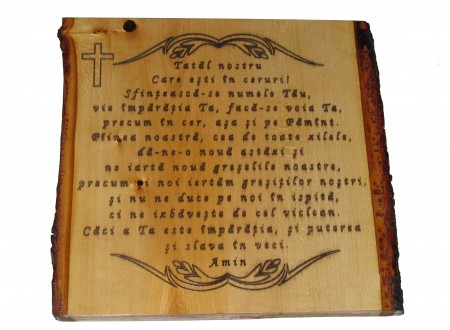 Tatăl nostru
Care ești în ceruri!
Sfințească-se numele Tău,
vie împărăția Ta, facă-se voia Ta,
precum în cer, așa și pe Pămînt.
Pîinea noastră, cea de toate zilele,
dă-ne-o nouă astăzi și
ne iartă nouă greșelile noastre,
precum și noi iertăm greșiților noștri,
și nu ne duce pe noi în ispită,
ci ne izbăvește de cel viclean.
Căci a Ta este împărăția, și puterea
și slava în veci.
Amin